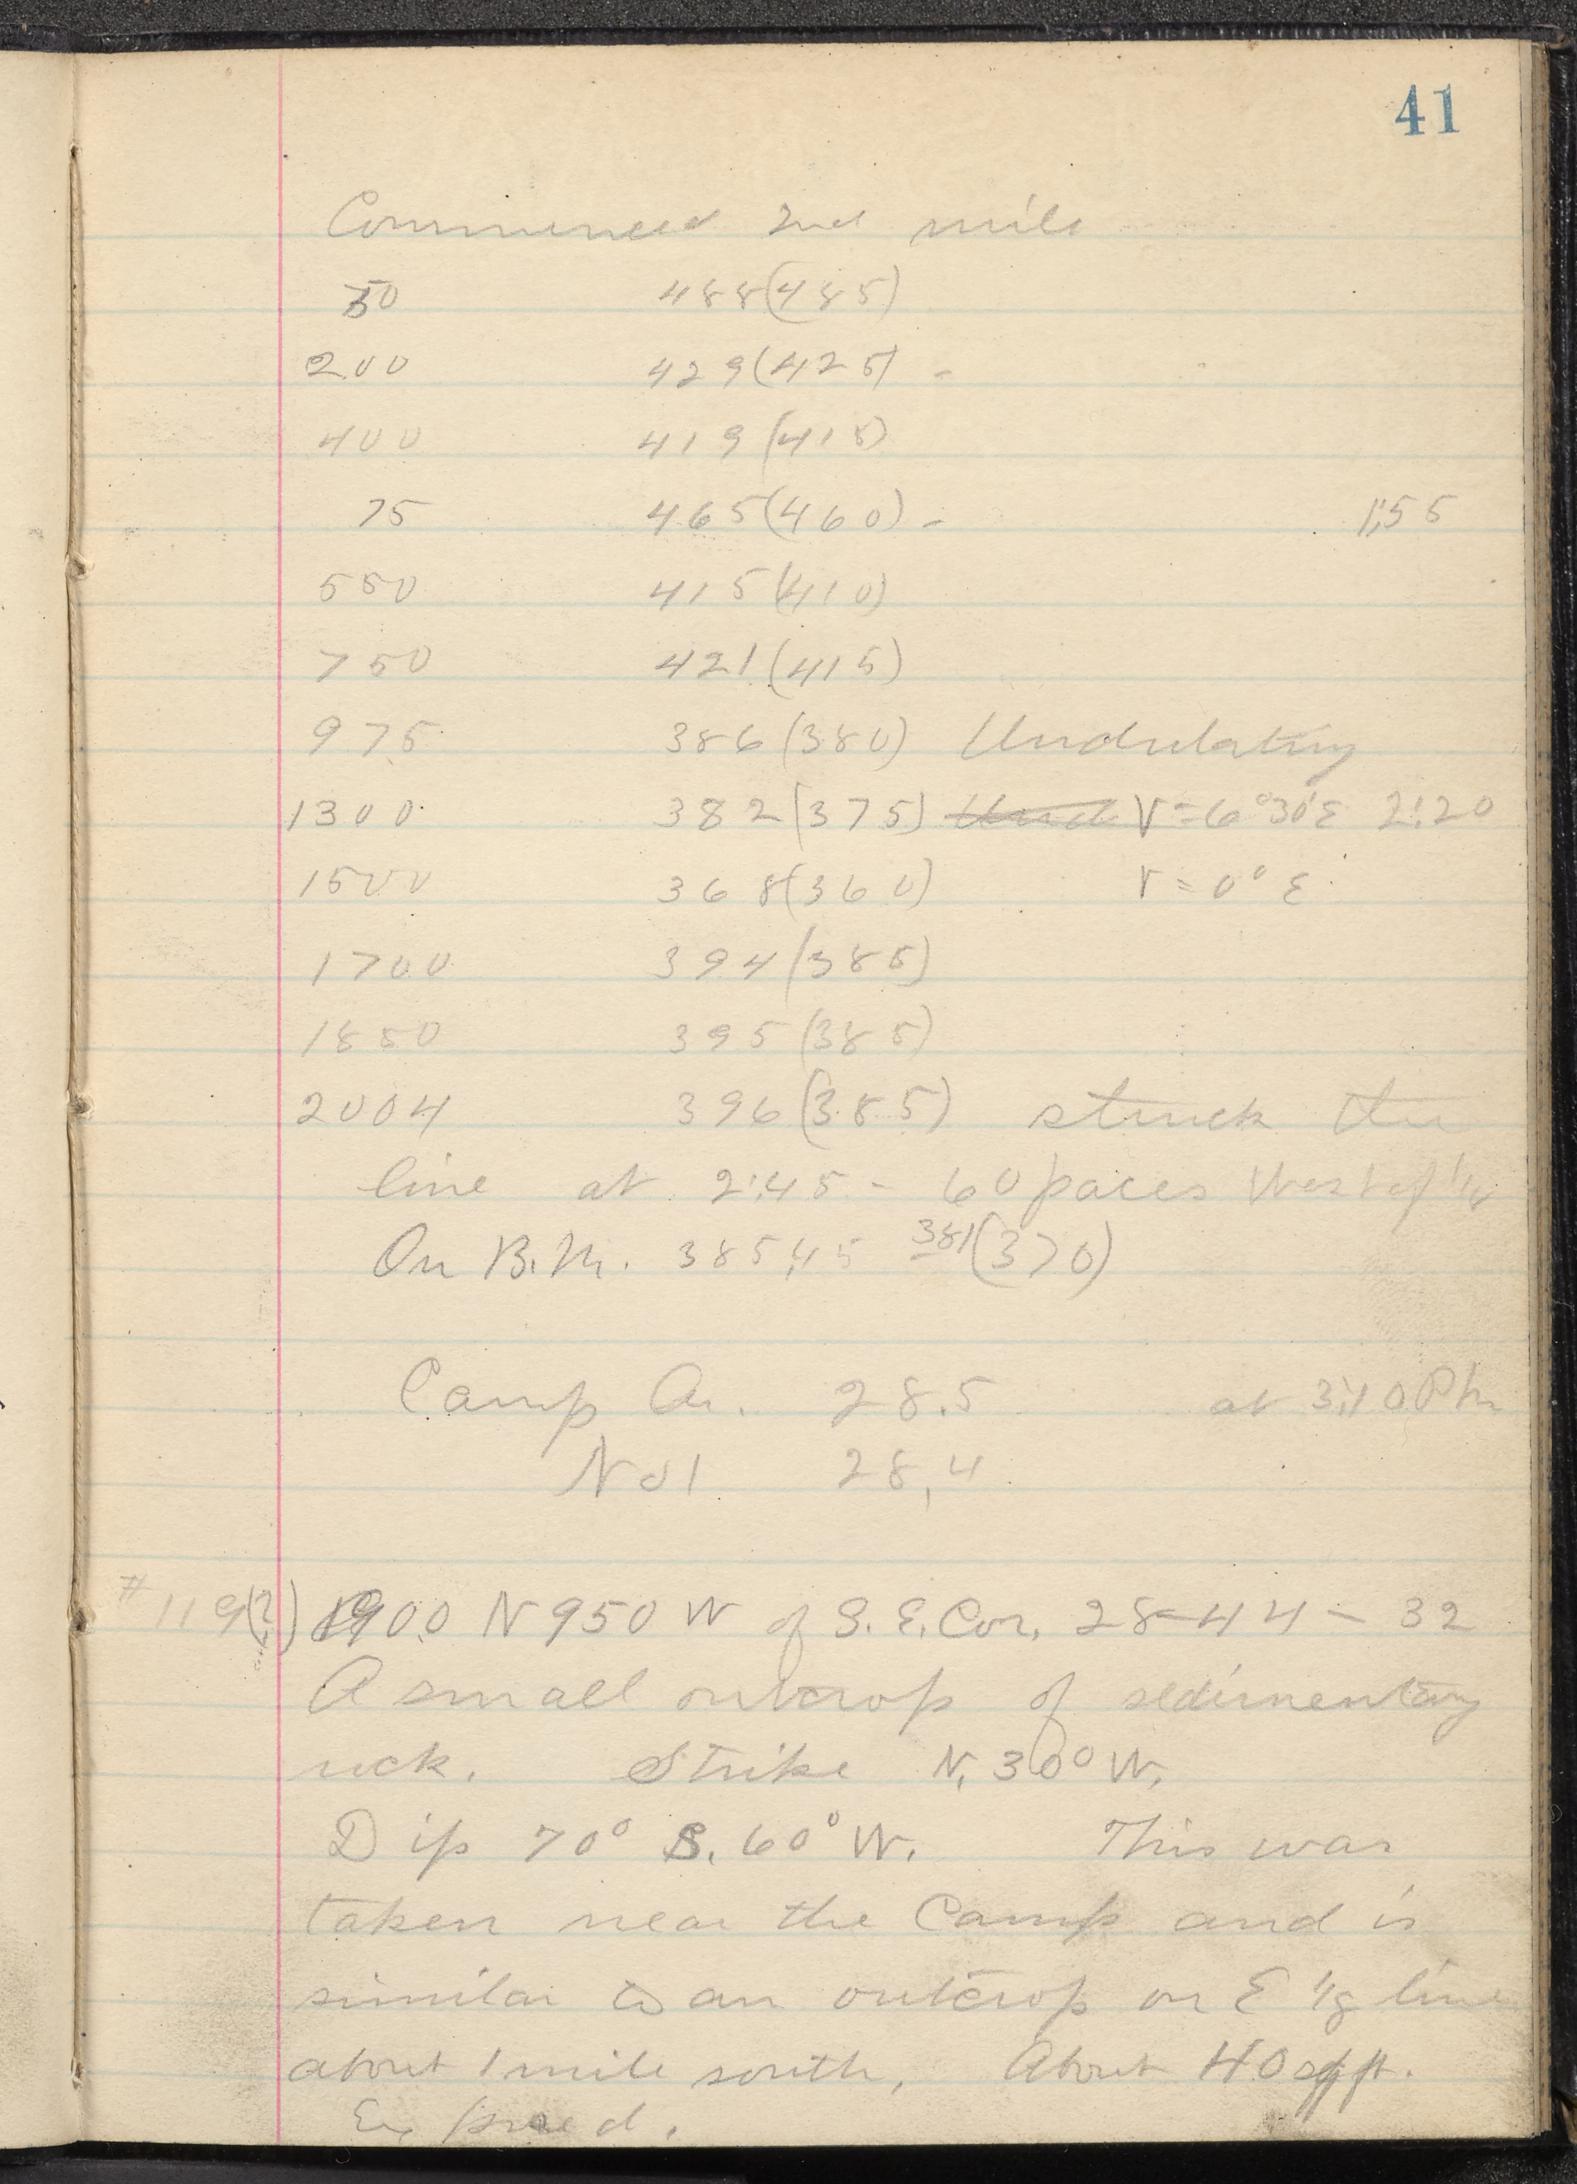 41
Commenced 2nd mile
50 488(485)
200 429(425) -
400 419(415)
75 465(460) - 1;55
550 415(410)
750 421(415)
975 386(380) Undulating
1300 382(375) Und V=6°30'E 2:20
1500 368(360) V=0°E
1700 394(385)
1850 395(385)
2004 396(385) struck the
line at 2:45 - 60 paces West of
On B.M. 385.45 381(370)
Camp An. 28.5 at 3:10 P M
No 1 28,4
#119(?) 1900 N 950 W of S.E. Cor, 28-44-32
A small outcrop of sedimentary
rock. Strike N. 30° W.
Dip 70° S. 60° W. This was
taken near the Camp and is
similar to an outcrop on E 1/8 line
about 1 mile south, About 40 sq ft.
Exposed.